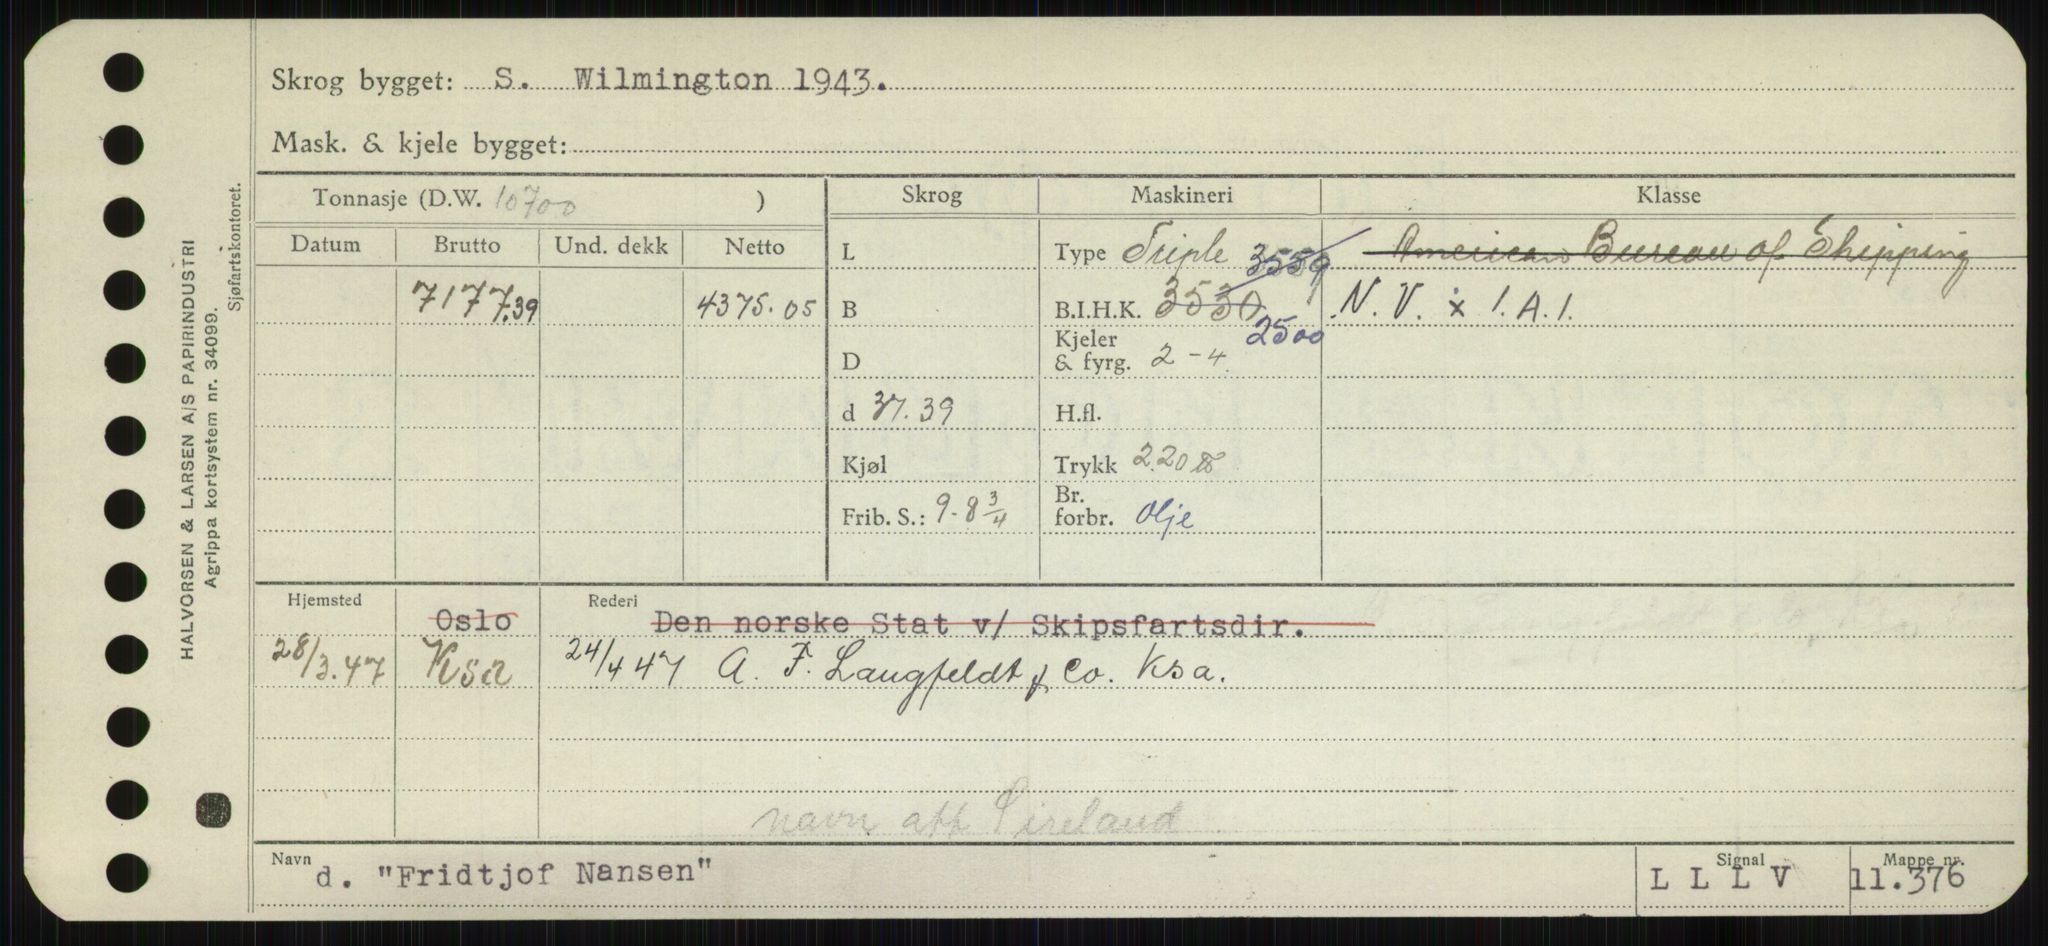 Skrog bygget: S. Wilmington 1943.
Mask. & kjele bygget:
Tonnasje (D.W. 10700 )
Skrog
Maskineri
Klasse
Datum
Brutto
Und. dekk
Netto
7177.39
4375.05
L
B
D
d 37.39
Kjøl
Frib. S.: 9-8 3/4
Type Triple 3559
B.I.H.K. 3530
2500
Kjeler
& fyrg. 2-4
H.fl.
Trykk 220 lb
Br.
forbr. olje
American Bureau of Shipping
N. V. x 1. A. 1.
Hjemsted
Oslo
Rederi
Den norske Stat v/ Skipsfartsdir.
28/3.47 Ksa
24/4 47 A. F. Langfeldt & Co. Ksa.
navn att Sireland
Navn
d. "Fridtjof Nansen"
Signal
L L L V
Mappe nr.
11.376
HALVORSEN & LARSEN A/S PAPIRINDUSTRI
Agrippa kortsystem nr. 34099.
Sjøfartskontoret.